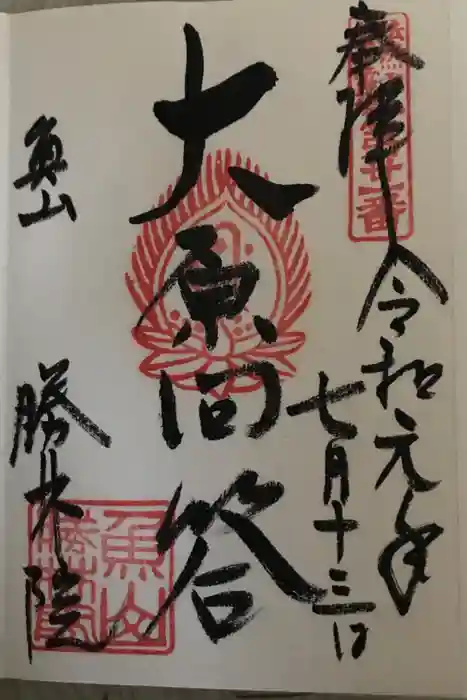 奉拝
令和元年
七月十三日
大原问答
魚山
勝林院
魚山